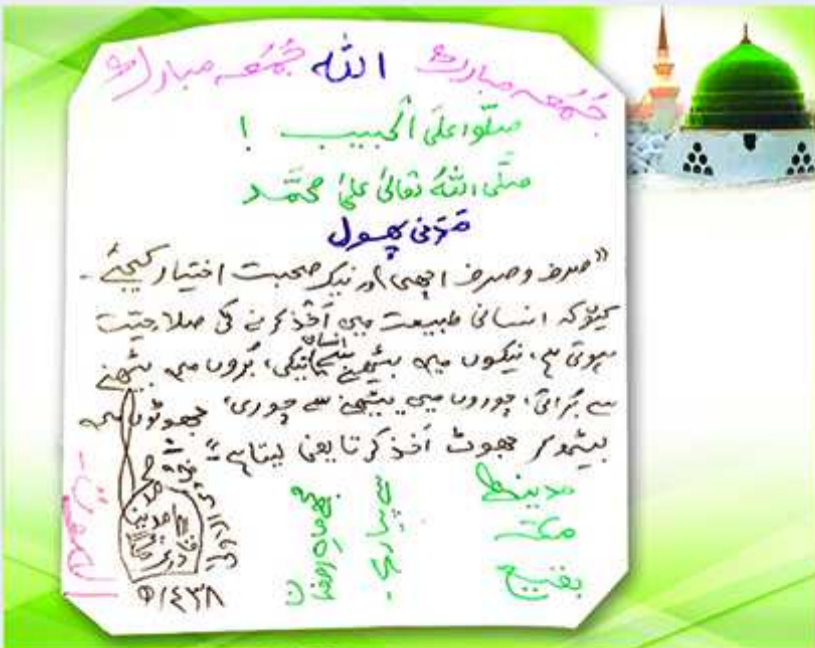 جُمُعہ مبارک اللہ جُمُعہ مبارک
صلُّوا علَی الْحبیب !
صلَّی اللہُ تعالیٰ علیٰ محمَّد
مَدَنی پھول
"صرف و صرف اچھی اور نیک صحبت اختیار کیجئے۔
کیونکہ انسانی طبیعت میں اَخْذ کرنے کی صلاحیّت
ہوتی ہے، نیکوں میں بیٹھنے سے انسان نیکی، بُروں میں بیٹھنے
سے بُرائی، چوروں میں بیٹھنے سے چوری، جھوٹوں میں
بیٹھ کر جھوٹ اَخْذ کرتا یعنی لیتا ہے"
مدینہ
مکّہ
بقیع
ماہِ رمضان
۱٤۳۸ھ